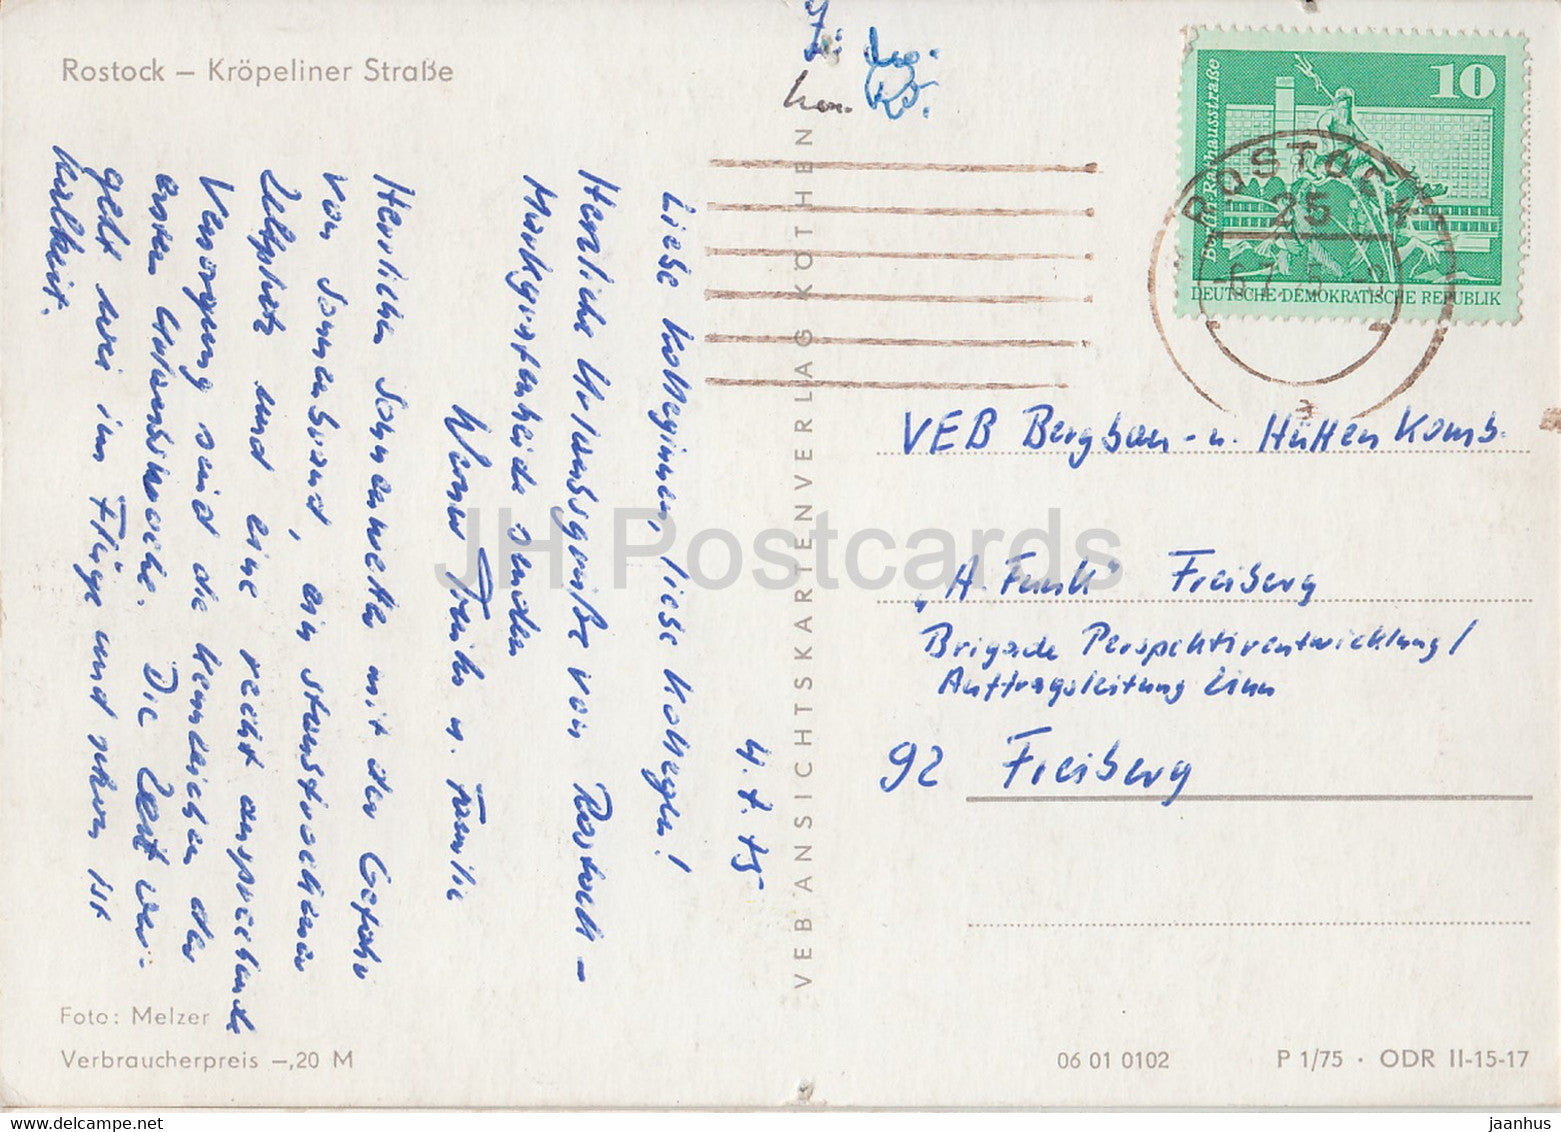 Rostock – Kröpeliner Straße
4.7.75
Liebe Kolleginnen, liebe Kollegen!
Herzliche Urlaubsgrüße von Rostock –
Markgrafenheide senden
Werner u. Familie
Herrliches Sonnenwetter mit der Gefahr
von Sonnenbrand, ein stürmischer
Zeltplatz und eine recht ansprechende
Versorgung sind die Kennzeichen der
ersten Urlaubswoche. Die Zeit ver-
geht wie im Fluge und schon ist
Halbzeit.
Foto: Melzer
Verbraucherpreis –,20 M
VEB ANSICHTSKARTENVERLAG KÖTHEN
10
Berlin, Rathausstraße
DEUTSCHE DEMOKRATISCHE REPUBLIK
ROSTOCK
25
VEB Bergbau- u. Hütten Komb.
„A. Funk" Freiberg
Brigade Perspektiventwicklung/
Auftragsleitung
92 Freiberg
06 01 0102
P 1/75 · ODR II-15-17
JH Postcards
jaanhus
www.delcampe.net